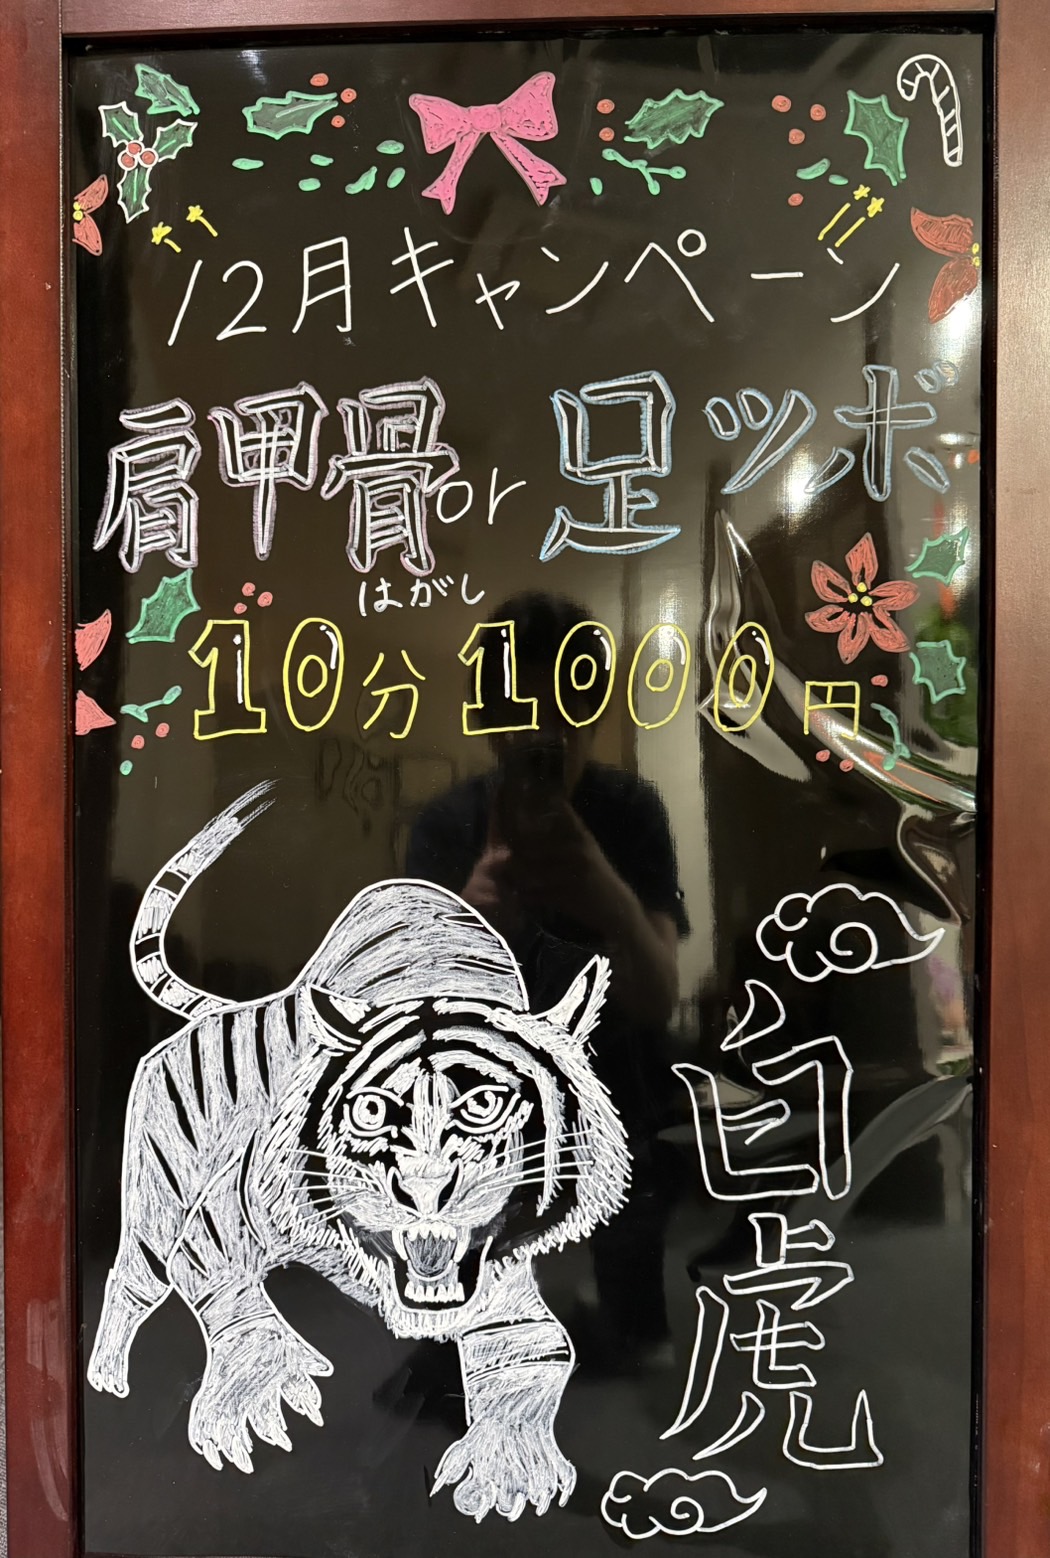 12月キャンペーン
肩甲骨or足ツボ
はがし
10分1000円
白虎